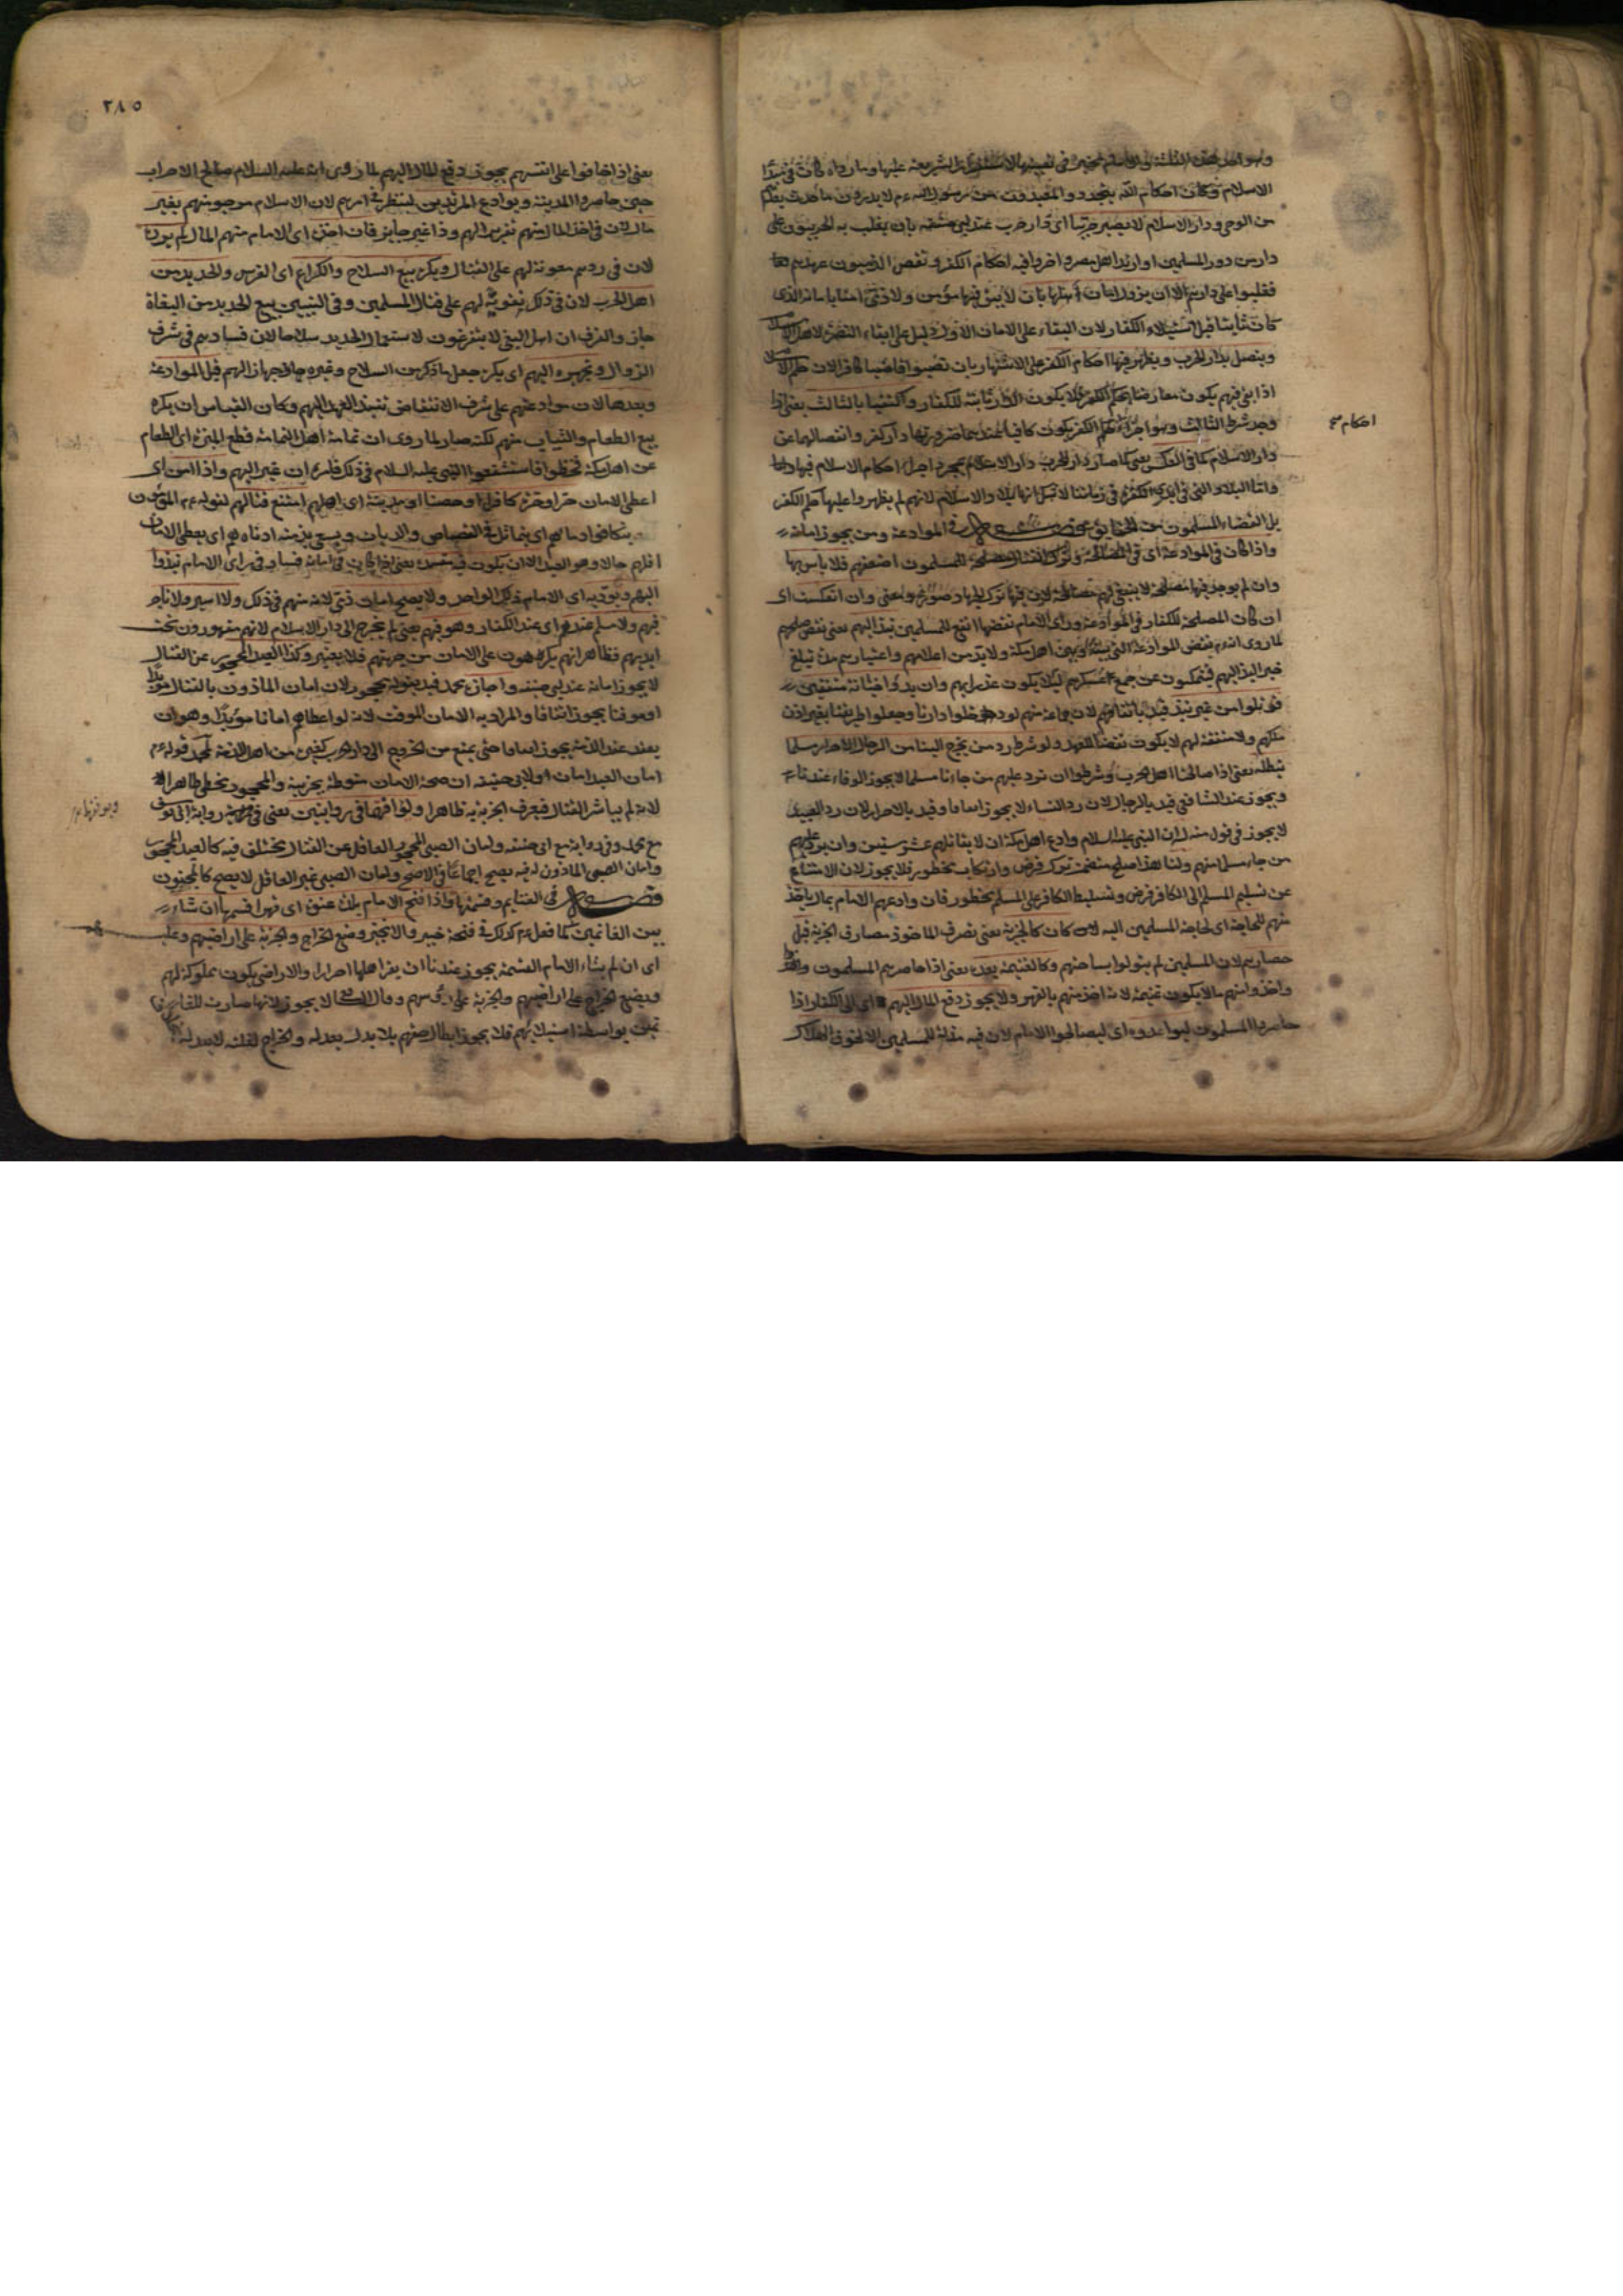 الاسلام وكان احكام الله يتجدد والمفيدون من رسول الله عم لا يدرون ما حدث بعدهم
من الوحى ودار الاسلام لا يصير حربيا اى دار حرب عند ابى حنيفه بان يغلب به الحربيون على
دار من دور المسلمين او ارتد اهل مصر واجروا فيه احكام الكفر او نقض الذميون عهدهم
فغلبوا على دارهم الا ان يزول امان اهلها بان لا يبقى فيها مؤمن ولا ذمى امنا بامانه الذى
كان ثابتا قبل استيلاء الكفار لان البقاء على الامان الاول دليل على ابقاء النصرة لاهل الاسلام
ويتصل بدار الحرب ويظهر فيها احكام الكفر على الاشتهار بان نصبوا قاضيا كافرا لان حكم الاسلام
اذا بقى فيهم يكون معارضا بحكم الكفر فلا يكون الدار ثابتة للكفار واكتفيا بالثالث يعنى اذا
وجد شرط الثالث وهو اجراء حكم الكفر يكون كافيا عندهما فى صيرورتها دار كفر وانفصالها عن
احكام صح
دار الاسلام كما فى العكس يعنى كما صار دار الحرب دار الاسلام بمجرد اجراء احكام الاسلام فيها
واما البلاد التى فى ايدى الكفرة فى زماننا لا شك انها بلاد الاسلام لانهم لم يظهروا عليها حكم الكفر
بل القضاة المسلمون من الحقايق فصل فى الموادعة ومن يجوز امانه
واذا كان فى الموادعة اى فى المصالحة وترك القتال مصلحة للمسلمون اضعفهم فلا باس بها
وان لم يوجد فيها مصلحة لا ينبغى لهم مصالحة لان فيها ترك الجهاد صورة ومعنى وان انعكست اى
ان كان المصلحة للكفار فى الموادعة وراى الامام نقضها انفع للمسلمين نبذ اليهم يعنى نقض صلحهم
لما روى انه عم نقض الموادعة التى بينه وبين اهل مكة ولا بد من اعلامهم واعتبار مدة تبلغ
خبر النبذ اليهم فيتمكنون من جمع عسكرهم ليلا يكون غدرا بهم وان بدؤا خيانة متفقين
قوتلوا من غير نبذ قيد باتفاقهم لان جماعة منهم لو دخلوا دارنا وجعلوا طريقنا بغير اذن
ملكهم ولا منفعة لهم لا يكون نقضا للعهد ولو شرط رد من يخرج الينا من الرجال الاحرار مسلما
نبطله يعنى اذا صالحنا اهل الحرب وشرطوا ان نرد عليهم من جاءنا مسلما لا يجوز الوفاء عندنا
ويجوز عند الشافعى قيد بالرجال لان رد النساء لا يجوز اتفاقا وقيد بالاحرار لان رد العبيد
لا يجوز فى قول منه له ان النبى عليه السلام وادع اهل مكة ان لا يقاتلهم عشر سنين وان يرد عليهم
من جاء مسلما منهم ولنا هذا صلح متضمن ترك فرض وارتكاب محظور فلا يجوز لان الامتناع
عن تسليم المسلم الى الكافر فرض وتسليط الكافر على المسلم محظور فان وادعهم الامام بمال ياخذ
منهم للحاجة اى لحاجة المسلمين اليه كان كالجزية يعنى يصرف الماخوذ مصارف الجزية قبل
حصارهم لان المسلمين لم ينزلوا بساحتهم وكالغنيمة بعده يعنى اذا حاصرهم المسلمون
واخذوا منهم مالا يكون غنيمة لانه اخذ منهم بالقهر ولا يجوز دفع المال اليهم اى الى الكفار اذا
حاصروا المسلمون ليوادعوه اى ليصالحوا الامام لان فيه مذلة للمسلمين الا لخوف الهلاك
٢٨٥
يعنى اذا خافوا على انفسهم يجوز دفع المال اليهم لما روى انه عليه السلام صالح الاحزاب
حين حاصروا المدينة ويوادع المرتدين لينظر فى امرهم لان الاسلام مرجو منهم بغير
مال لان فى اخذ المال منهم تقريرا لهم وذا غير جايز فان اخذه اى الامام منهم المال لم يرده
لان فى ردهم معونة لهم على القتال ويكره بيع السلاح والكراع اى الفرس والحديد من
اهل الحرب لان فى ذلك تقوية لهم على قتال المسلمين وفى التبيين بيع الحديد من البغاة
جاز والفرق ان اهل البغى لا يتفرغون لاستعمال الحديد سلاحا لان فسادهم فى شرف
الزوال وتجهيزه اليهم اى يكره جعل ما ذكر من السلاح وغيره جهازا اليهم قبل الموادعة
وبعدها لان موادعتهم على شرف الانتقاض بنبذ العهد اليهم وكان القياس ان يكره
بيع الطعام والثياب منهم لكنه صار لما روى ان ثمامة اهل اليمامة قطع الميرة اى الطعام
عن اهل مكة فقحطوا فاستشفعوا النبى عليه السلام فى ذلك فامره ان يمير اليهم واذا امن اى
اعطى الامان حر او حرة كافرا او حصنا او مدينة اى اهلهم امتنع قتالهم لقوله عم المؤمنون
تتكافوا دماهم اى يتماثل فى القصاص والديات ويسعى بذمته ادناهم اى يعطى الامان
اقلهم حالا وهو العبد الا ان يكون فيه مفسدة يعنى اذا كان فى امانه فساد فى راى الامام نبذوا
اليهم ويؤدبه اى الامام ذلك الواحد ولا يصح امان ذمى لانه متهم فى ذلك ولا اسير ولا تاجر
فيهم ولا مسلم عندهم اى عند الكفار وهو فيهم يعنى لم يخرج الى دار الاسلام لانهم مقهورون تحت
ايديهم فظاهر انهم يكرهون على الامان من جهتهم فلا يعتبر وكذا العبد المحجور عن القتال
لا يجوز امانه عند ابى حنيفة واجازه محمد قيد بقوله محجور لان امان الماذون بالقتال مؤبدا
او موقتا يجوز اتفاقا والمراد به الامان الموقت لانه لو اعطاهم امانا مؤبدا وهو ان
يعقد عقد الذمة يجوز اتفاقا حتى يمنع من الخروج الى دار الحرب كغيره من اهل الذمة لمحمد قوله عم
امان العبد امان ولابى حنيفة ان صحة الامان منوطة بحربية والمحجور يخطى ظاهرا
لانه لم يباشر القتال فيعرف الحربية ظاهرا ووافقهما فى روايتين يعنى فى رواية ابى يوسف
مع محمد وفى رواية مع ابى حنيفة وامان الصبى المحجور العاقل عن القتال يختلف فيه كالعبد المحجور
وامان الصبى الماذون له فيه يصح اجماعا فى الاصح وامان الصبى غير العاقل لا يصح كالمجنون
فصل فى الغنايم وقسمتها واذا فتح الامام بلدة عنوة اى قهرا قسمها ان شاء
بين الغانمين كما فعل عم كذلك فى فتحه خيبر والا يخير وضع الخراج والجزية على اراضيهم وعليهم
اى ان لم يشاء الامام القسمة يجوز عندنا ان يقر اهلها احرارا والاراضى يكون مملوكة لهم
ويضع الخراج على اراضيهم والجزية على رؤسهم وقال الشافعى لا يجوز لانها صارت للغانمين
بواسطة استيلائهم فلا يجوز ابطال حقهم بلا بدل يعدله والخراج لقلته لا يعدله